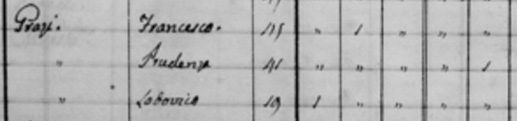 Grazi. Francesco. 45 " 1 " " " "
" Prudenza 41 " " " " " 1
" Lodovico 19 1 " " " " "